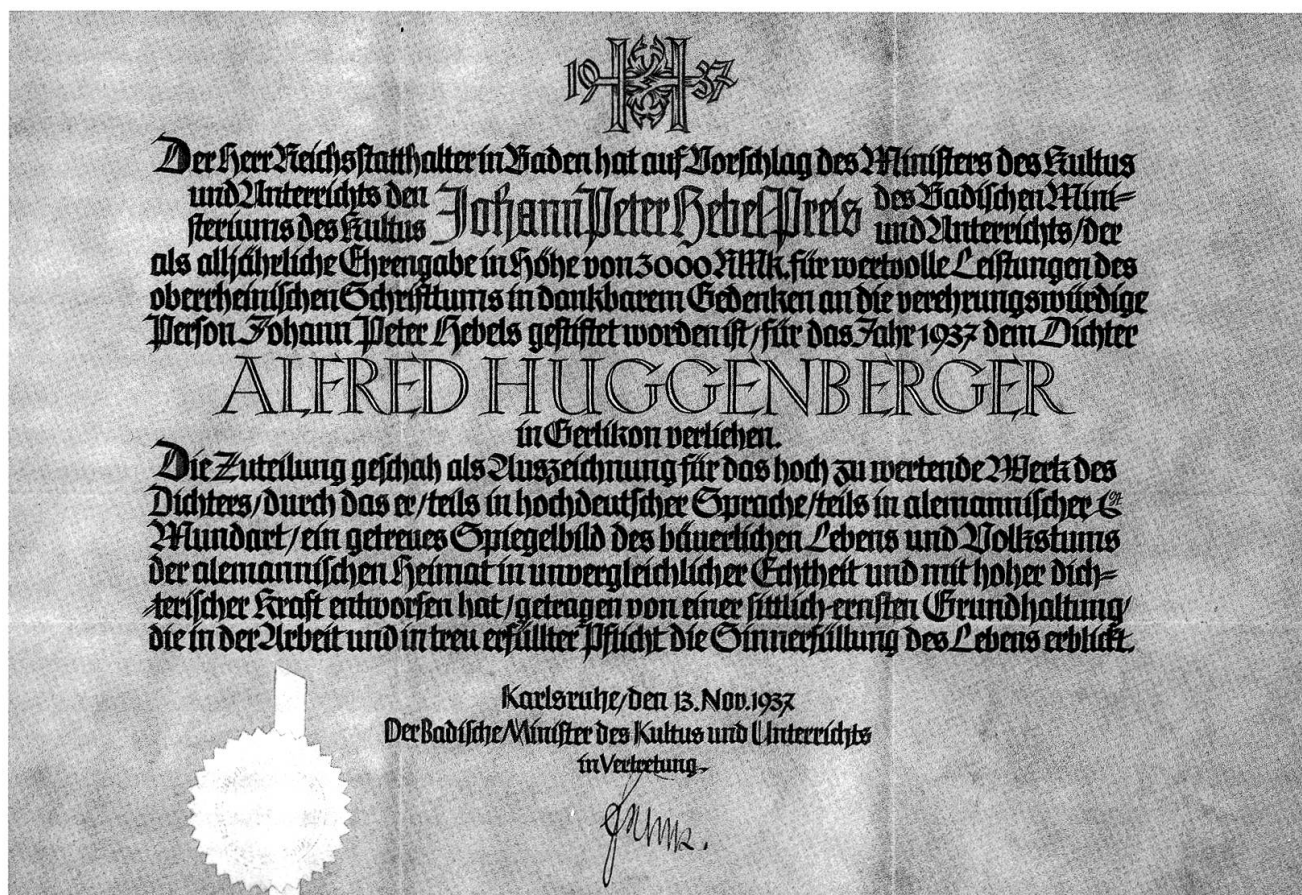 19 H 37
Der Herr Reichsstatthalter in Baden hat auf Vorschlag des Ministers des Kultus
und Unterrichts den Johann Peter Hebel-Preis des Badischen Mini-
steriums des Kultus und Unterrichts/der
als alljährliche Ehrengabe in Höhe von 3000 RMk. für wertvolle Leistungen des
oberrheinischen Schrifttums in dankbarem Gedenken an die verehrungswürdige
Person Johann Peter Hebels gestiftet worden ist/für das Jahr 1937 dem Dichter
ALFRED HUGGENBERGER
in Gerlikon verliehen.
Die Zuteilung geschah als Auszeichnung für das hoch zu wertende Werk des
Dichters/durch das er/teils in hochdeutscher Sprache/teils in alemannischer
Mundart/ein getreues Spiegelbild des bäuerlichen Lebens und Volkstums
der alemannischen Heimat in unvergleichlicher Echtheit und mit hoher dich-
terischer Kraft entworfen hat/getragen von einer sittlich-ernsten Grundhaltung/
die in der Arbeit und in treu erfüllter Pflicht die Sinnerfüllung des Lebens erblickt.
Karlsruhe/den 13. Nov. 1937
Der Badische Minister des Kultus und Unterrichts
in Vertretung.